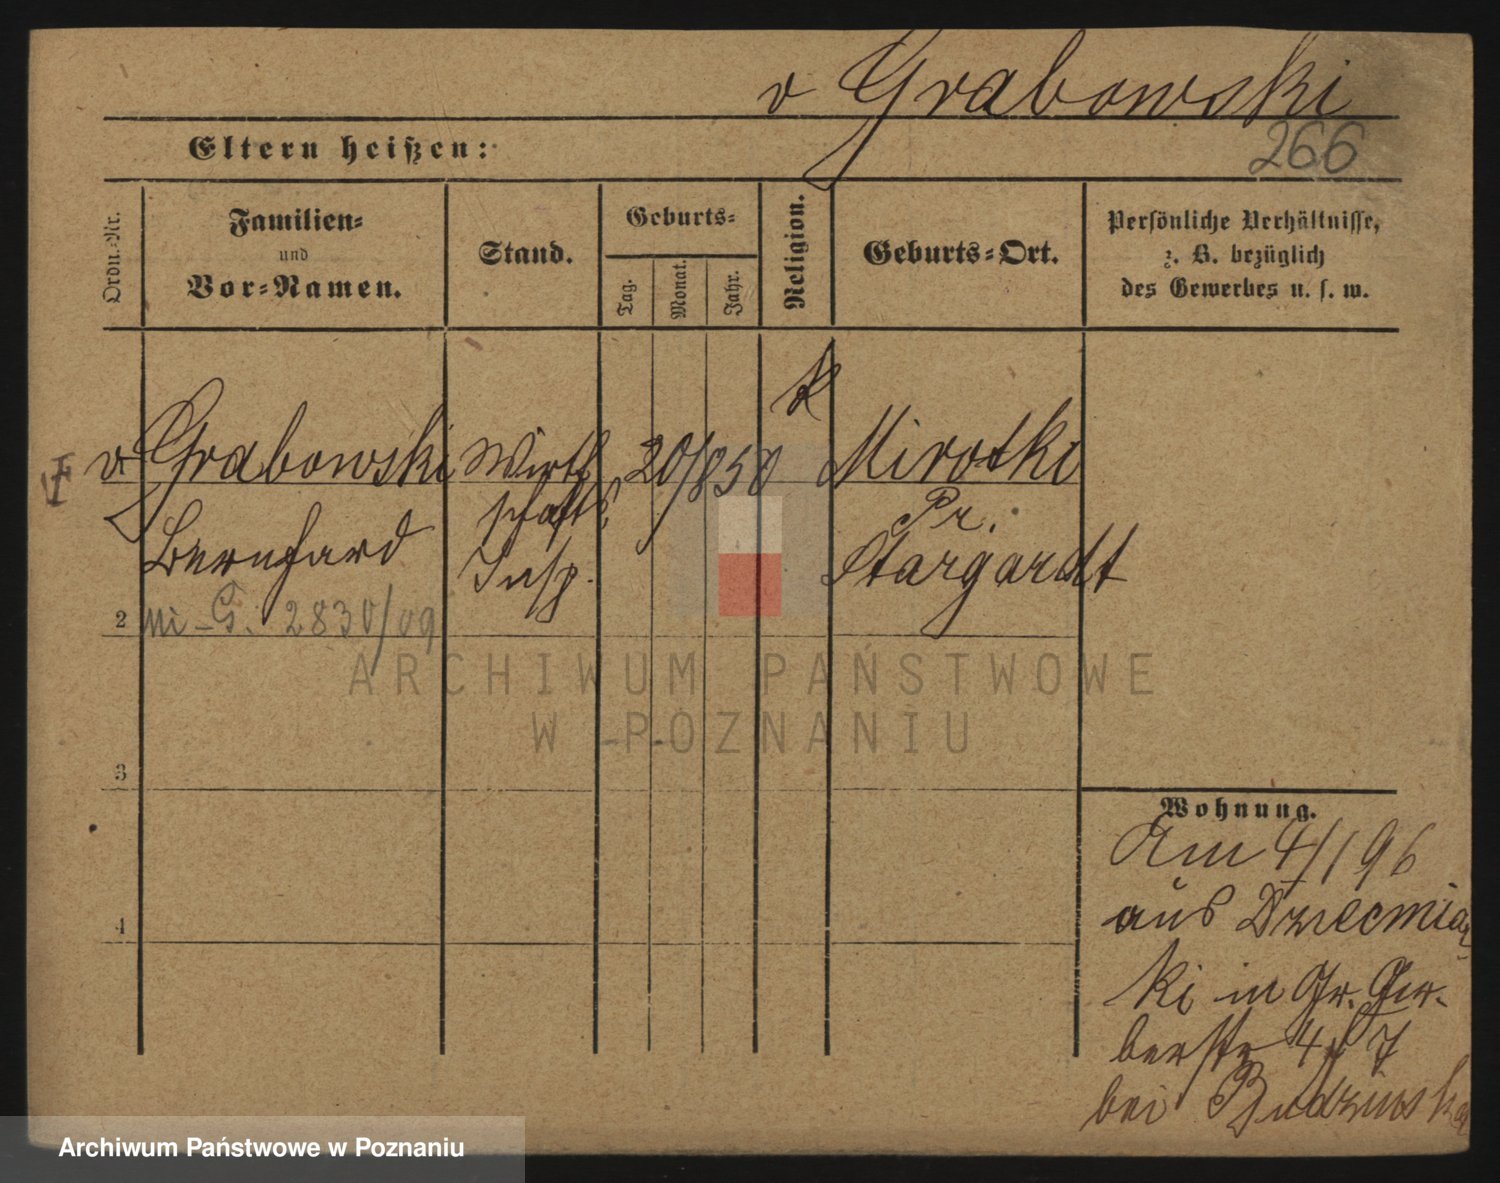 v Grabowski
266
Eltern heißen:
Ordn.-Nr.
Familien-
und
Vor-Namen.
Stand.
Geburts-
Tag.
Monat.
Jahr.
Religion.
Geburts-Ort.
Persönliche Verhältnisse,
z. B. bezüglich
des Gewerbes u. s. w.
v Grabowski
Bernhard
Wirth
schafts
Insp.
20/8 50
k
Mirotki
Pr.
Stargardt
2
2830/09
3
4
Wohnung.
Am 4/1 96
aus Dziecmia
ki in Gr. Ger-
berstr 4
bei Budzinska
ARCHIWUM PAŃSTWOWE
W POZNANIU
Archiwum Państwowe w Poznaniu